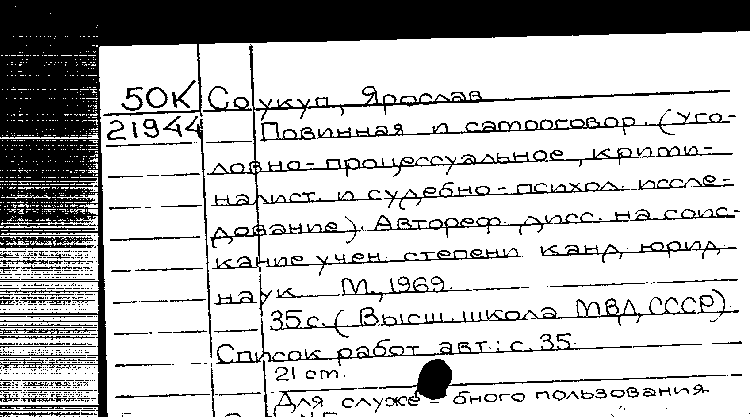 50К Соукуп, Ярослав
21944 Повинная и самооговор. (Уго-
ловно-процессуальное, крими-
налист. и судебно-психол. иссле-
дование). Автореф. дисс. на соис-
кание учен. степени канд. юрид.
наук. М., 1969.
35 с. (Высш. школа МВД СССР).
Список работ авт.: с. 35.
21 cm.
Для служебного пользования